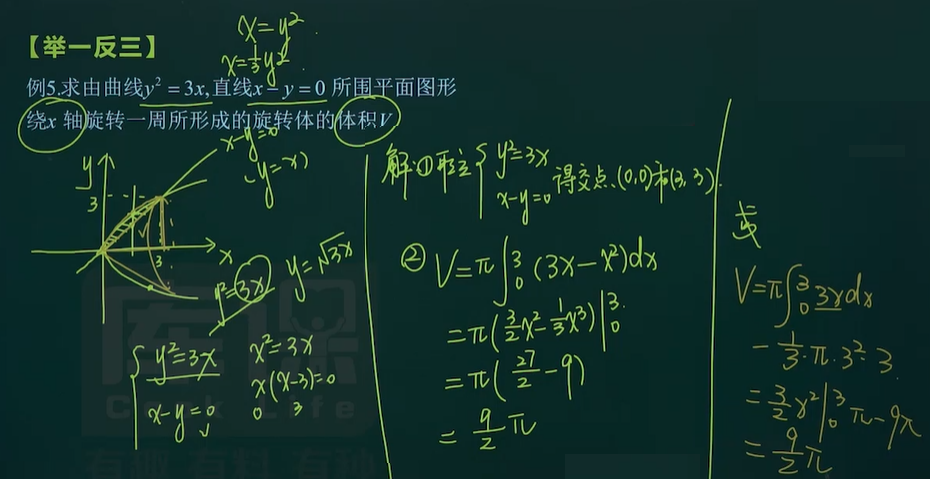 x=y²
【举一反三】
x=⅓y²
例5.求由曲线y²=3x,直线x-y=0 所围平面图形
绕x 轴旋转一周所形成的旋转体的体积V
x-y=0
(y=x)
y
3
x
3
y²=3x
y=√3x
{ y²=3x
x-y=0
x²=3x
x(x-3)=0
0 3
解:① { y²=3x
x-y=0
得交点(0,0)和(3,3).
② V=π∫₀³(3x-x²)dx
=π(3/2x²-1/3x³)|₀³
=π(27/2-9)
=9/2π
或
V=π∫₀³3xdx
-1/3·π·3²·3
=3/2x²|₀³π-9π
=9/2π
库课
Cook Life
有趣 有料 有种